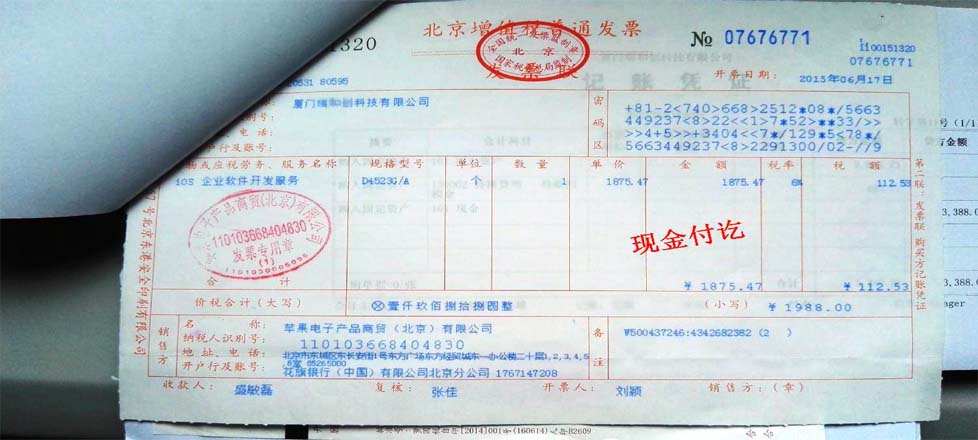 北京增值税普通发票
发票联
全国统一发票监制章
北京
国家税务总局监制
№ 07676771
1100151320
07676771
51320
开票日期: 2015年06月17日
10531 80595
科技有限公司
密码区
+81-2<740>668>2512*08*/5663
449237<8>22<<1>7*52>**33/>>
>>4+5>>+3404<<7*/129*5<78*/
5663449237<8>2291300/02-//9
电话:
开户行及账号:
物或应税劳务、服务名称 规格型号 单位 数量 单价 金额 税率 税额
iOS 企业软件开发服务 D4523G/A 个 1 1875.47 1875.47 6% 112.53
子产品商贸(北京)有限公司
110103668404830
发票专用章
(1)
现金付讫
合计 ¥1875.47 ¥112.53
价税合计(大写) ⊗壹仟玖佰捌拾捌圆整 (小写) ¥1988.00
销售方
名称: 苹果电子产品商贸(北京)有限公司
纳税人识别号: 110103668404830
地址、电话: 北京市东城区东长安街1号东方广场东方经贸城东一办公楼二十层1,2,3,4,5
,6室 85265000
开户行及账号: 花旗银行(中国)有限公司北京分公司 1767147208
备注
W500437246:4342682382 (2 )
收款人: 盛敏磊 复核: 张佳 开票人: 刘颖 销售方:(章)
第二联:发票联 购买方记账凭证
号北京东港安全印制有限公司
记账凭证
号 (1/1
方金额
3,388.0
3,388.0
ager
[2014]001号(160614)
B2609